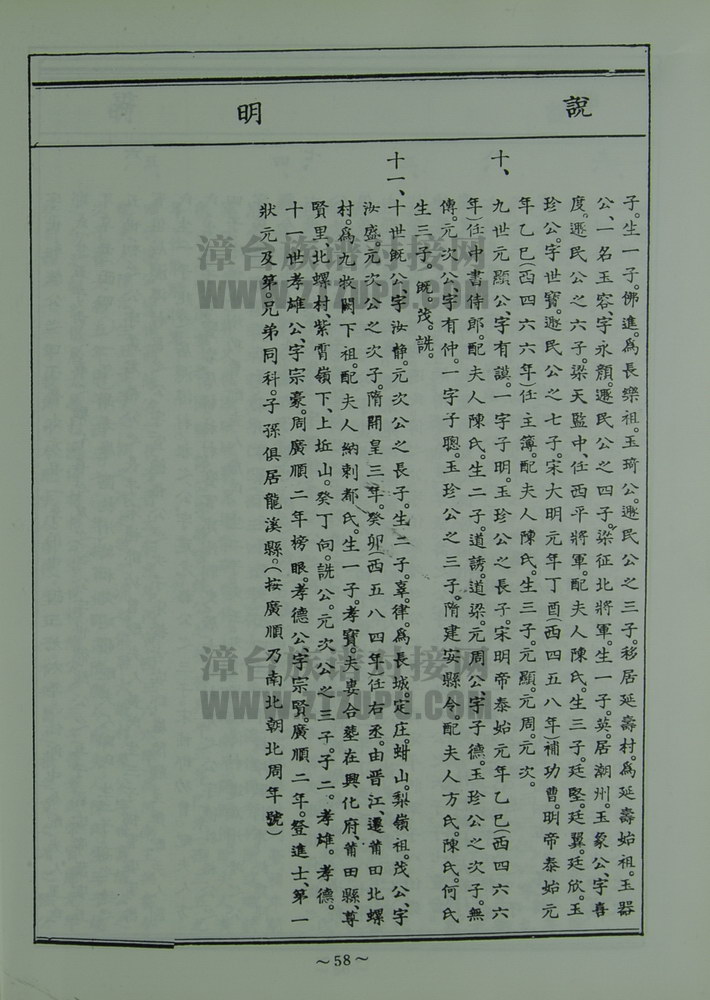 說明
子。生一子。佛進。為長樂祖。玉琦公。遯民公之三子。移居延壽村。為延壽始祖。玉器
公、一名玉容、字永顏。遯民公之四子。梁征北將軍。生一子。英。居潮州。玉象公、字喜
度。遯民公之六子。梁天監中、任西平將軍。配夫人陳氏。生三子。廷堅。廷翼。廷欣。玉
珍公。字世寶。遯民公之七子。宋大明元年丁酉(西四五八年)補功曹。明帝泰始元
年乙巳(西四六六年)任主簿。配夫人陳氏。生三子。元顯。元周。元次。
十、九世元顯公、字有謨。一字子明。玉珍公之長子。宋明帝泰始元年乙巳(西四六六
年)任中書侍郎。配夫人陳氏。生二子。道誘。道梁。元周公、字子德。玉珍公之次子。無
傳。元次公、字有仲。一字子聰。玉珍公之三子。隋建安縣令。配夫人方氏。陳氏。何氏
生三子。既。茂。詵。
十一、十世既公、字汝靜。元次公之長子。生二子。辜。律。為長城。定庄。蚶山。梨嶺祖。茂公、字
汝盛。元次公之次子。隋開皇三年。癸卯(西五八四年)任右丞。由晋江、遷莆田北螺
村。為九牧闕下祖。配夫人納剌都氏。生一子。孝寶。夫妻合塟在興化府、莆田縣、尊
賢里、北螺村、紫霄嶺下、上坵山。癸丁向。詵公。元次公之三子。子二。孝雄。孝德。
十一世孝雄公、字宗豪。周廣順二年榜眼。孝德公、字宗賢。廣順二年。登進士、第一
狀元及第。兄弟同科。子孫俱居龍溪縣。(按廣順乃南北朝北周年號)
~58~
漳台族谱对接网
WWW.ZTZUPU.COM
漳台族谱对接网
WWW.ZTZUPU.COM